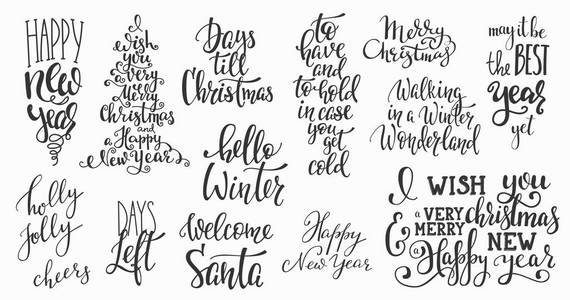 HAPPY
new
year
I
wish
you
a very
Merry
Christmas
and
a Happy
New Year
Days
till
Christmas
to
have
and
to hold
in case
you
get
cold
Merry
Christmas
may it be
the BEST
year
yet
Walking
in a Winter
Wonderland
hello
Winter
holly
Jolly
cheers
DAYS
Left
Welcome
Santa
Happy
New Year
I WISH you
a VERY
MERRY christmas
& a Happy NEW
year